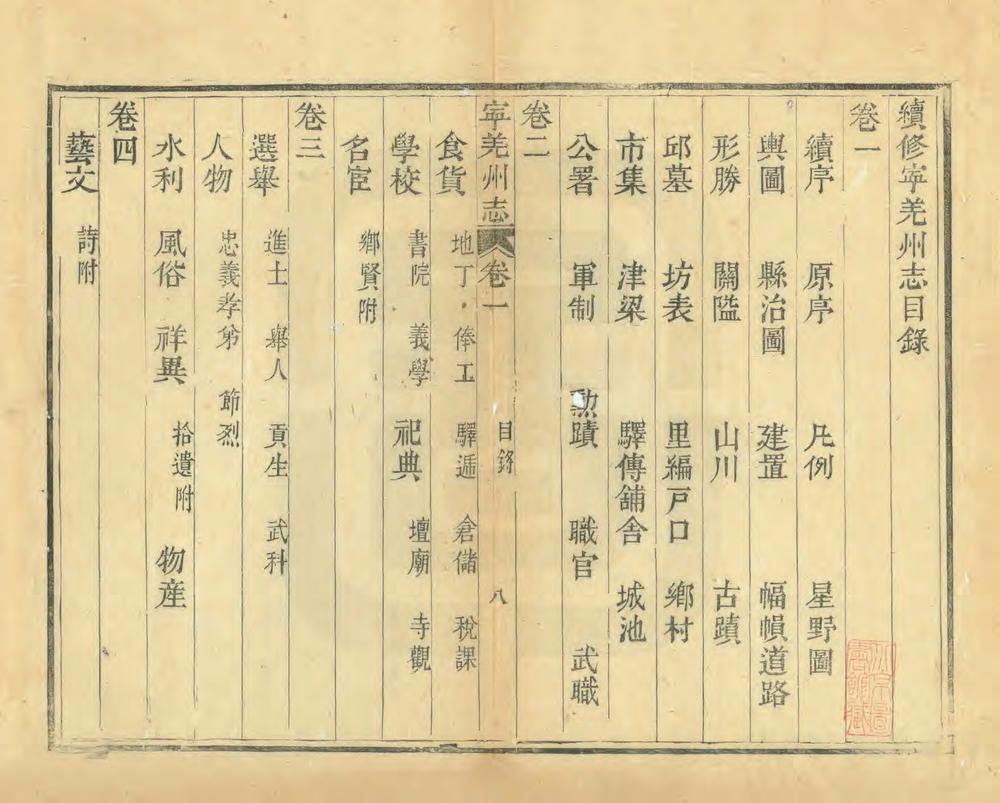 續修寧羌州志目錄
卷一
續序 原序 凡例 星野圖
輿圖 縣治圖 建置 幅幀道路
形勝 關隘 山川 古蹟
邱墓 坊表 里編戸口 鄉村
市集 津梁 驛傳舖舍 城池
公署 軍制 勲蹟 職官 武職
卷二
寧羌州志 卷一 目錄 八
食貨 地丁 俸工 驛遞 倉儲 稅課
學校 書院 義學 祀典 壇廟 寺觀
名宦 鄉賢附
卷三
選舉 進士 舉人 貢生 武科
人物 忠義孝弟 節烈
水利 風俗 祥異 拾遺附 物産
卷四
藝文 詩附